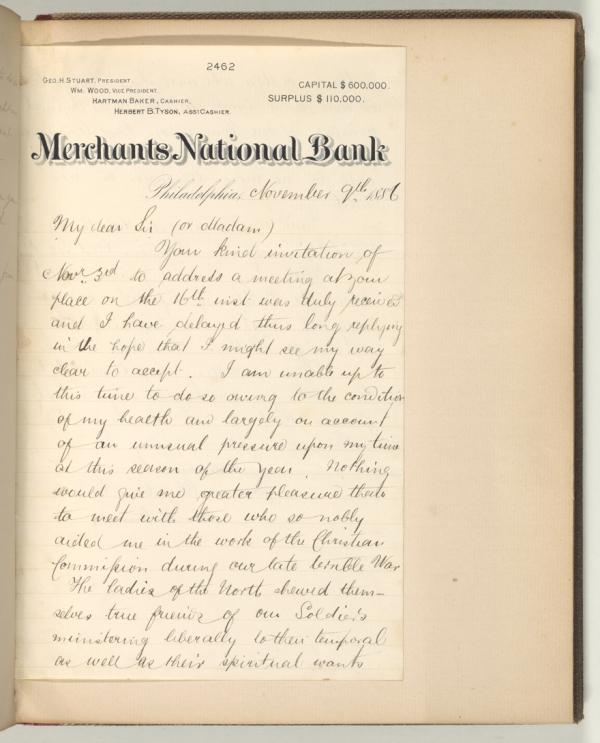 2462
GEO. H. STUART, PRESIDENT.
WM. WOOD, VICE PRESIDENT.
HARTMAN BAKER, CASHIER,
HERBERT B. TYSON, ASST CASHIER.
CAPITAL $600.000.
SURPLUS $110.000.
Merchants National Bank
Philadelphia, November 9th 1886
My dear Sir (or Madam)
Your kind invitation of
Novr 3rd to address a meeting at your
place on the 16th inst was duly received
and I have delayed thus long replying
in the hope that I might see my way
clear to accept. I am unable up to
this time to do so owing to the condition
of my health and largely on account
of an unusual pressure upon my time
at this season of the year. Nothing
would give me greater pleasure than
to meet with those who so nobly
aided me in the work of the Christian
Commission during our late terrible War
The ladies of the North shewed them-
selves true friends of our Soldiers
ministering liberally to their temporal
as well as their spiritual wants